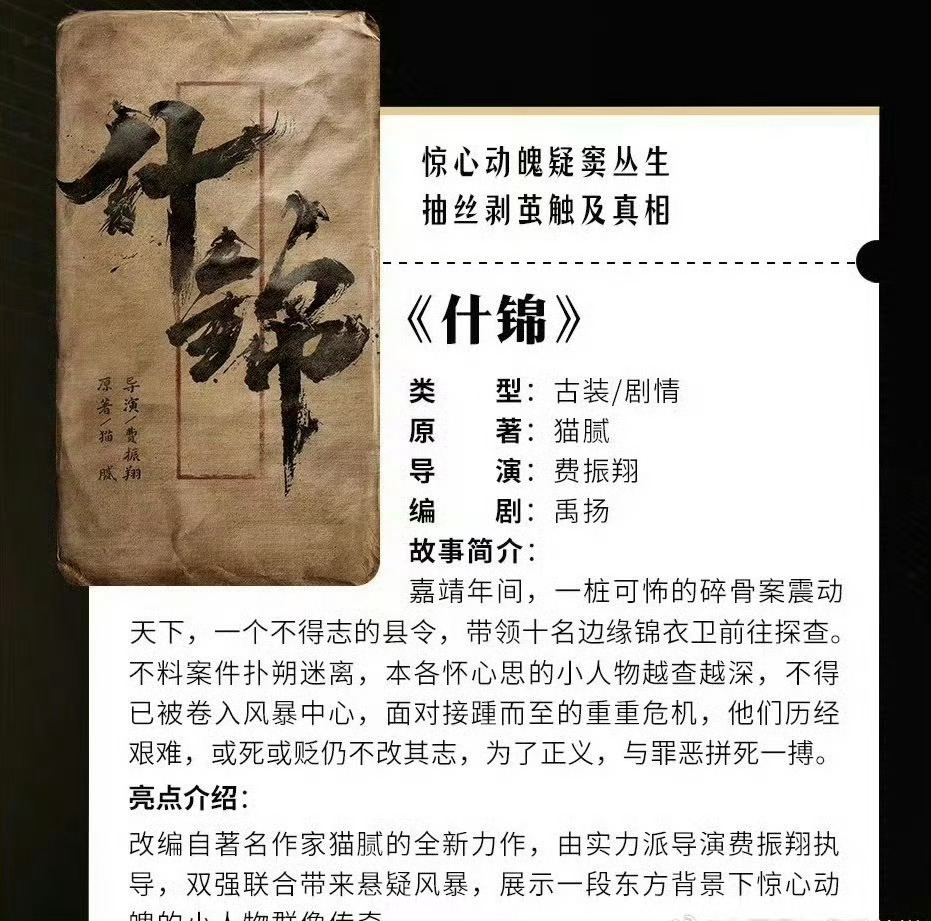 什锦
导演/费振翔
原著/猫腻
惊心动魄疑窦丛生
抽丝剥茧触及真相
《什锦》
类型：古装/剧情
原著：猫腻
导演：费振翔
编剧：禹扬
故事简介：
嘉靖年间，一桩可怖的碎骨案震动
天下，一个不得志的县令，带领十名边缘锦衣卫前往探查。
不料案件扑朔迷离，本各怀心思的小人物越查越深，不得
已被卷入风暴中心，面对接踵而至的重重危机，他们历经
艰难，或死或贬仍不改其志，为了正义，与罪恶拼死一搏。
亮点介绍：
改编自著名作家猫腻的全新力作，由实力派导演费振翔执
导，双强联合带来悬疑风暴，展示一段东方背景下惊心动
魄的小人物群像传奇